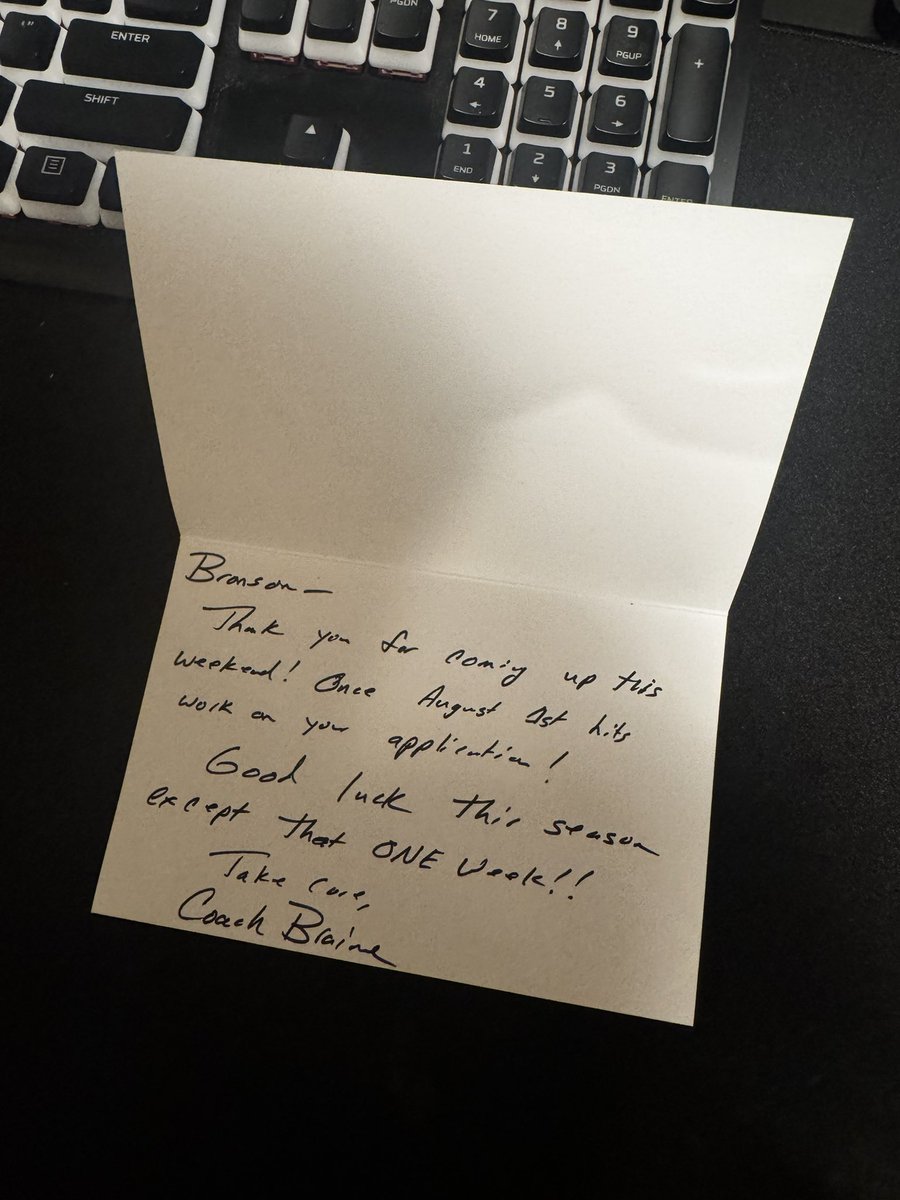 PGDN
7
HOME
8
9
PGUP
+
ENTER
4
5
6
SHIFT
1
END
2
3
PGDN
ENTER
Bronson—
Thank you for coming up this
weekend! Once August 1st hits
work on your application!
Good luck this season
except that ONE week!!
Take care,
Coach Blaine